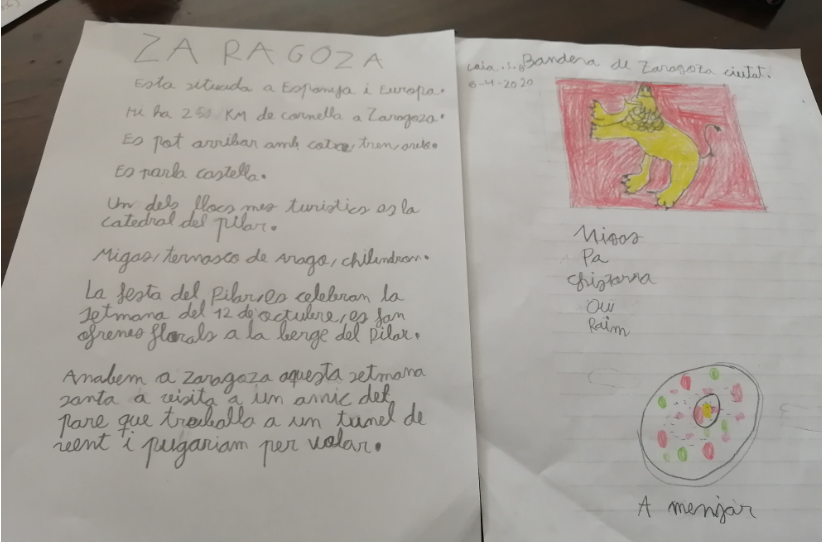 ZARAGOZA
Esta situada a Espanya i Europa.
Hi ha 250 KM de cornella a Zaragoza.
Es pot arribar amb cotxe, tren,
Es parla castella.
Un dels llocs mes turistics es la
catedral del pilar.
Migas, ternasco de Arago, chilindron.
La festa del Pilar, es celebran la
setmana del 12 de octubre, es fan
ofrenes florals a la berge del Pilar.
Anabem a Zaragoza aquesta setmana
santa a visita a un amic del
pare que treballa a un tunel de
vent i pugariam per volar.
Laia .S.B Bandera de Zaragoza ciutat.
6-4-2020
Migas
Pa
Chistorra
Ou
Raim
A menjar